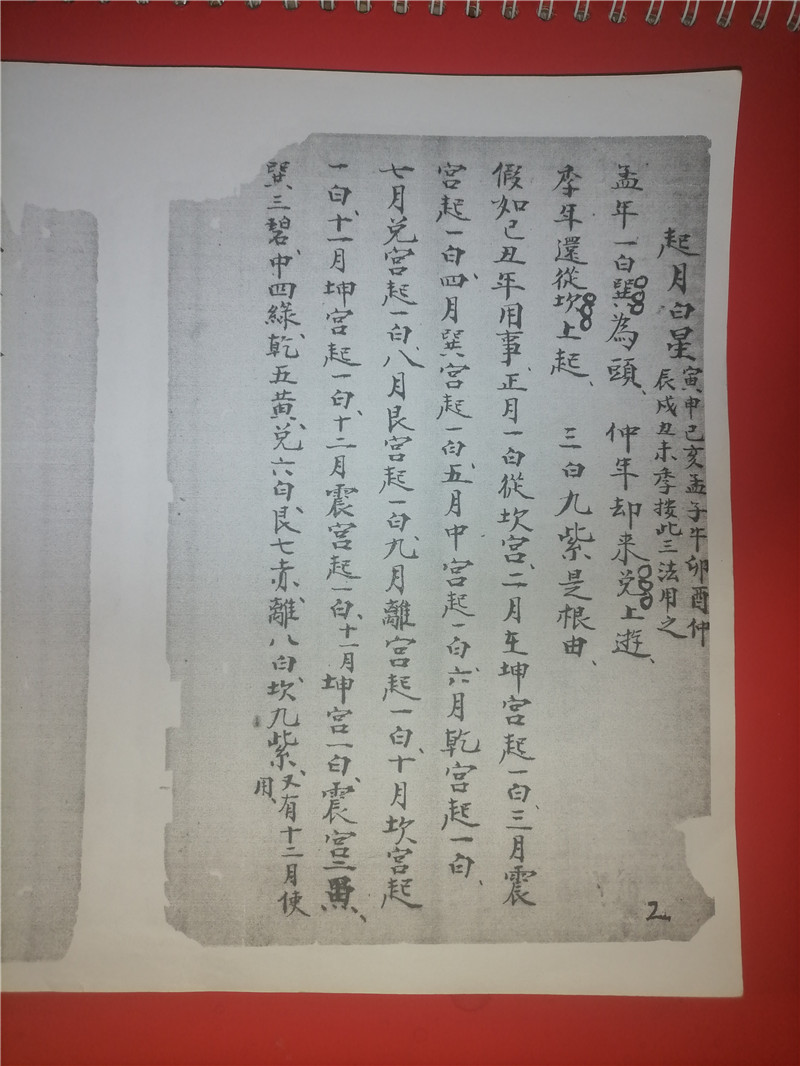 起月白星 寅申己亥孟子午卯酉仲
辰戌丑未季按此三法用之
孟年一白巽為頭、 仲年却来兌上遊、
季年還從坎上起、 三白九紫是根由、
假如己丑年用事、正月一白從坎宮、二月在坤宮起一白、三月震
宮起一白、四月巽宮起一白、五月中宮起一白、六月乾宮起一白、
七月兌宮起一白、八月艮宮起一白、九月離宮起一白、十月坎宮起
一白、十一月坤宮起一白、十二月震宮起一白、十一月坤宮一白、震宮二黑、
巽三碧、中四綠、乾五黃、兌六白、艮七赤、離八白、坎九紫、又有十二月使
用、
2